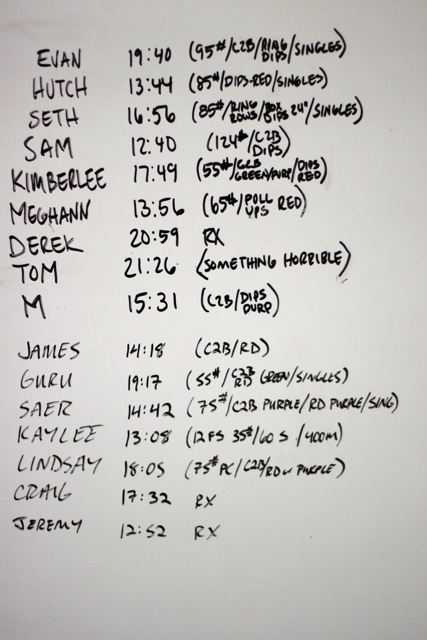 EVAN 19:40 (95#/C2B/RING DIPS/SINGLES)
HUTCH 13:44 (85#/DIPS-RED/SINGLES)
SETH 16:56 (85#/RING ROWS/BOX DIPS 24"/SINGLES)
SAM 12:40 (124#/C2B DIPS)
KIMBERLEE 17:49 (55#/C2B GREEN/PURP/DIPS RED)
MEGHANN 13:56 (65#/PULL UPS RED)
DEREK 20:59 RX
TOM 21:26 (SOMETHING HORRIBLE)
M 15:31 (C2B/DIPS PURP)
JAMES 14:18 (C2B/RD)
GURU 19:17 (55#/C2B RD GREEN/SINGLES)
SAER 14:42 (75#/C2B PURPLE/RD PURPLE/SING)
KAYLEE 13:08 (12FS 35#/60 S/400M)
LINDSAY 18:05 (75# PC/C2B/RDW PURPLE)
CRAIG 17:32 RX
JEREMY 12:52 RX